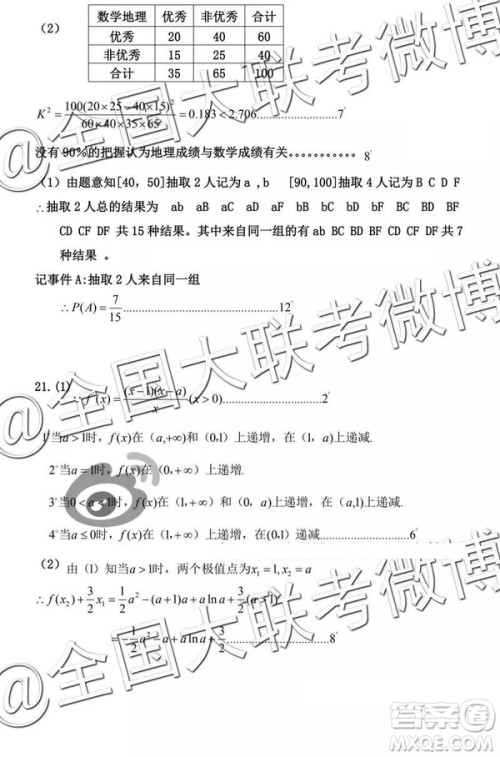 (2)
数学地理 优秀 非优秀 合计
优秀 20 40 60
非优秀 15 25 40
合计 35 65 100
K² = 100(20×25−40×15)² / 60×40×35×65 = 0.183 < 2.706..................7'
没有90%的把握认为地理成绩与数学成绩有关。。。。。。。 8'
(1) 由题意知[40, 50]抽取2人记为a ,b [90,100]抽取4人记为B C D F
∴抽取2人总的结果为 ab aB aC aD aF bB bC bD bF BC BD BF
CD CF DF 共15种结果。其中来自同一组的有ab BC BD BF CD CF DF共7
种结果 。
记事件A:抽取2人来自同一组
∴ P(A) = 7/15..................................12'
21. (1)
∵ f'(x) = (x−1)(x−a)/x (x>0)........................2'
1°当a>1时, f(x)在 (a,+∞)和 (0,1)上递增, 在 (1, a)上递减.
2°当a=1时, f(x)在 (0,+∞)上递增.
3°当0<a<1时, f(x)在 (1,+∞)和 (0, a)上递增, 在 (a,1)上递减.
4°当a≤0时, f(x)在 (1,+∞)上递增, 在 (0,1)递减............6'
(2) 由 (1) 知当a>1时, 两个极值点为x₁=1, x₂=a
∴ f(x₂)+3/2 x₁ = 1/2 a² −(a+1)a+a ln a+3/2 (a>1)
= −1/2 a² −a+a ln a+3/2..................8'
@全国大联考微博
@全国大联考微博
@全国大联考微博
答案圈
MXQE.COM